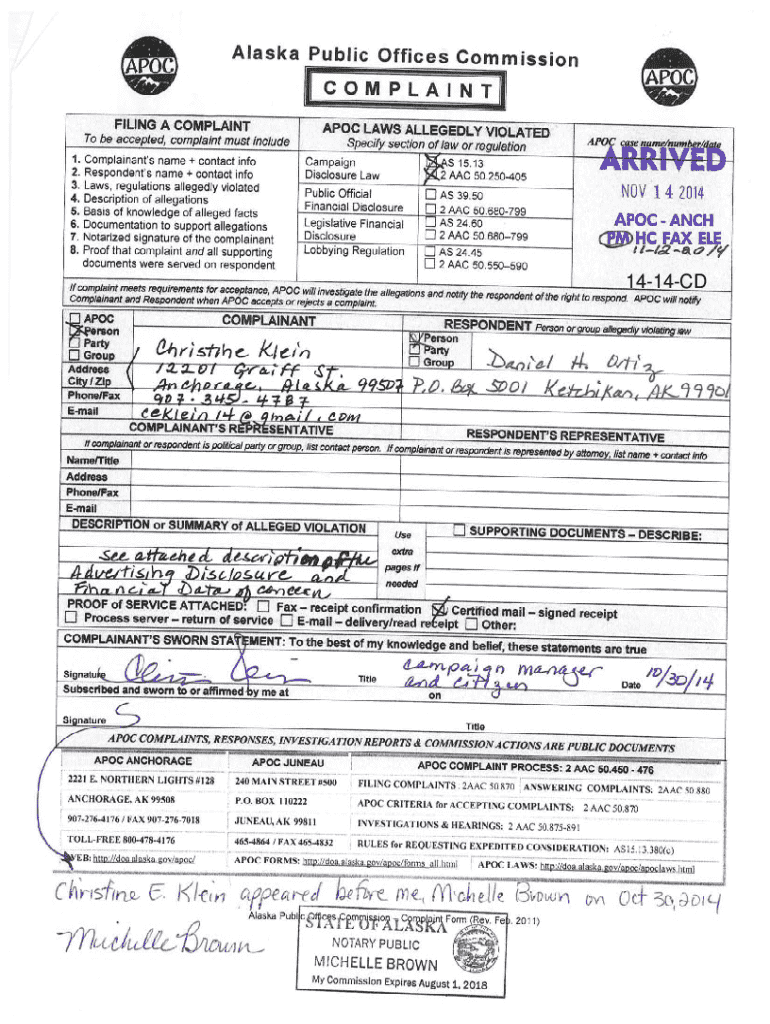 APOC
Alaska Public Offices Commission
COMPLAINT
APOC
FILING A COMPLAINT
To be accepted, complaint must include
1. Complainant's name + contact info
2. Respondent's name + contact info
3. Laws, regulations allegedly violated
4. Description of allegations
5. Basis of knowledge of alleged facts
6. Documentation to support allegations
7. Notarized signature of the complainant
8. Proof that complaint and all supporting
documents were served on respondent
APOC LAWS ALLEGEDLY VIOLATED
Specify section of law or regulation
Campaign
Disclosure Law
AS 15.13
2 AAC 50.250-405
Public Official
Financial Disclosure
AS 39.50
2 AAC 50.680-799
Legislative Financial
Disclosure
AS 24.60
2 AAC 50.680-799
Lobbying Regulation
AS 24.45
2 AAC 50.550-590
APOC case name/number/date
ARRIVED
NOV 14 2014
APOC - ANCH
PM HC FAX ELE
11-12-2014
14-14-CD
If complaint meets requirements for acceptance, APOC will investigate the allegations and notify the respondent of the right to respond. APOC will notify
Complainant and Respondent when APOC accepts or rejects a complaint.
APOC
Person
Party
Group
COMPLAINANT
Christine Klein
RESPONDENT Person or group allegedly violating law
Person
Party
Group
Daniel H. Ortiz
Address
12201 Graiff St.
City / Zip
Anchorage, Alaska 99507
P.O. Box 5001 Ketchikan, AK 99901
Phone/Fax
907-345-4787
E-mail
ceklein14@gmail.com
COMPLAINANT'S REPRESENTATIVE
RESPONDENT'S REPRESENTATIVE
If complainant or respondent is political party or group, list contact person. If complainant or respondent is represented by attorney, list name + contact info
Name/Title
Address
Phone/Fax
E-mail
DESCRIPTION or SUMMARY of ALLEGED VIOLATION
Use
extra
pages if
needed
SUPPORTING DOCUMENTS – DESCRIBE:
see attached description of the
Advertising Disclosure and
Financial Data of concern
PROOF of SERVICE ATTACHED: Fax – receipt confirmation Certified mail – signed receipt
Process server – return of service E-mail – delivery/read receipt Other:
COMPLAINANT'S SWORN STATEMENT: To the best of my knowledge and belief, these statements are true
Signature
Title
campaign manager
and citizen
Date 10/30/14
Subscribed and sworn to or affirmed by me at
on
Signature
Title
APOC COMPLAINTS, RESPONSES, INVESTIGATION REPORTS & COMMISSION ACTIONS ARE PUBLIC DOCUMENTS
APOC ANCHORAGE
2221 E. NORTHERN LIGHTS #128
ANCHORAGE, AK 99508
907-276-4176 / FAX 907-276-7018
TOLL-FREE 800-478-4176
WEB: http://doa.alaska.gov/apoc/
APOC JUNEAU
240 MAIN STREET #500
P.O. BOX 110222
JUNEAU, AK 99811
465-4864 / FAX 465-4832
APOC FORMS: http://doa.alaska.gov/apoc/forms_all.html
APOC COMPLAINT PROCESS: 2 AAC 50.450 - 476
FILING COMPLAINTS: 2AAC 50.870 ANSWERING COMPLAINTS: 2AAC 50.880
APOC CRITERIA for ACCEPTING COMPLAINTS: 2 AAC 50.870
INVESTIGATIONS & HEARINGS: 2 AAC 50.875-891
RULES for REQUESTING EXPEDITED CONSIDERATION: AS15.13.380(c)
APOC LAWS: http://doa.alaska.gov/apoc/apoclaws.html
Christine E. Klein appeared before me, Michelle Brown on Oct 30, 2014
Alaska Public Offices Commission – Complaint Form (Rev. Feb. 2011)
Michelle Brown
STATE OF ALASKA
NOTARY PUBLIC
MICHELLE BROWN
My Commission Expires August 1, 2018